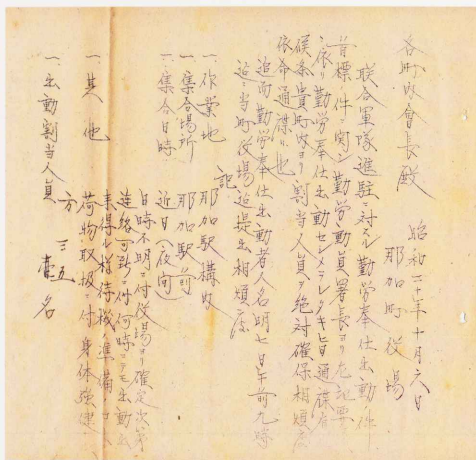 昭和二十年十月六日
那加町役場
各町内會長殿
聯合軍隊進駐ニ対スル勤労奉仕出動ノ件
首標ノ件ニ関シ勤労動員署長ヨリ左記要
依リ勤労奉仕出動セシメラレタキ旨通牒有
候条貴町内ヨリ割当人員ヲ絶対確保相煩度
依命通牒候也
追而勤労奉仕出動者人名明七日午前九時
迄ニ当町役場迄提出相煩度
記
一、作業地 那加駅構内
一、集合場所 那加駅前
一、集合日時 近日ノ夜間
日時不明ニ付役場ヨリ確定次第
連絡可致ニ付何時ニテモ出動出
来得ル様待機ノ準備
一、其他 荷物取扱ニ付身体強健
方
一、出動割当人員 三五 名